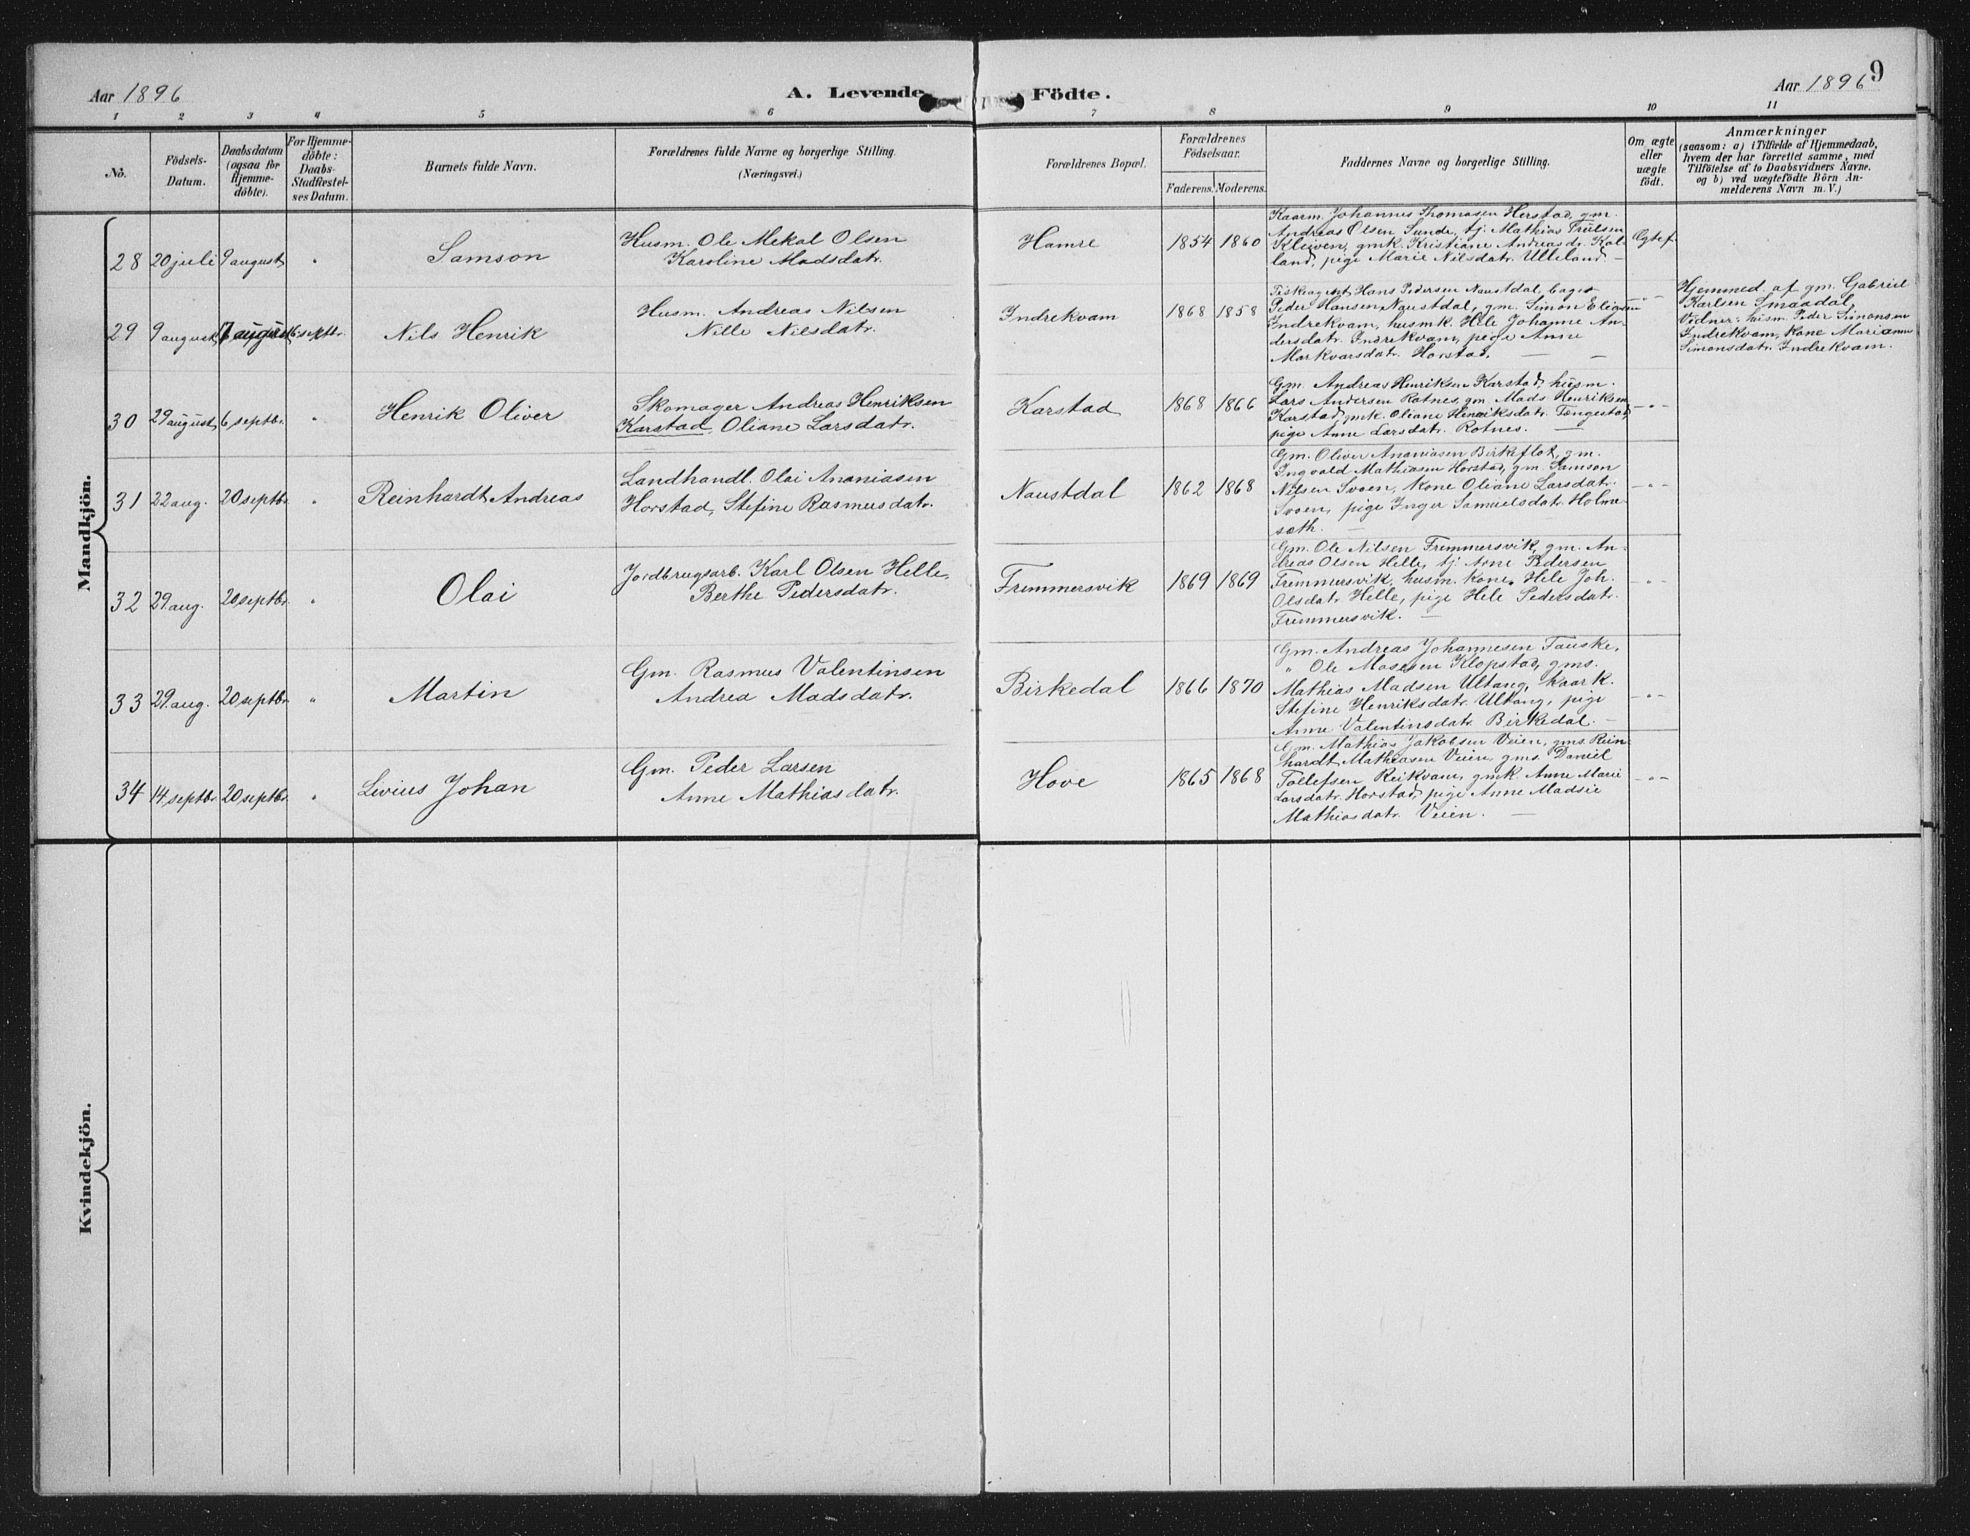 Aar 1896
A. Levende Födte.
Aar 1896
9
1 2 3 4 5 6 7 8 9 10 11
No.
Födsels-Datum.
Daabsdatum (ogsaa for Hjemme-döbte).
For Hjemme-döbte: Daabs-Stadfæstel-ses Datum.
Barnets fulde Navn.
Forældrenes fulde Navne og borgerlige Stilling.
(Næringsvei.)
Forældrenes Bopæl.
Forældrenes Födselsaar.
Faderens. Moderens.
Faddernes Navne og borgerlige Stilling.
Om ægte eller uægte födt.
Anmærkninger
(saasom: a) i Tilfælde af Hjemmedaab,
hvem der har forrettet samme, med
Tilföielse af to Daabsvidners Navne.
og b) ved uægtefödte Börn An-
melderens Navn m. V.)
Mandkjön.
28 20 juli 9 august "
Samson
Husm. Ole Mekal Olsen
Karoline Madsdatr.
Hamre
1854 1860
Kaarm. Johannes Thomasen Herstad, gm.
Andreas Olsen Sunde, tj. Mathias Trulsen
Kleiven, gmk. Kristiane Andreasdr. Kal-
land, pige Marie Nilsdatr. Ulleland. —
Ægtef.
29 9 august august 6 septbr.
Nils Henrik
Husm. Andreas Nilsen
Nille Nilsdatr.
Indrekvam
1868 1858
Fiskeagent Hans Pedersen Naustdal, bager
Peder Hansen Naustdal, gm. Simon Eliassen
Indrekvam, husmk. Hele Johanne An-
dersdatr. Indrekvam, pige Anne
Markvarsdatr. Horstad. — —
-"-
Hjemmed. af gm. Gabriel
Karlsen Smaadal,
Vidner: husm. Peder Simonsen
Indrekvam, Kone Marianne
Simonsdatr. Indrekvam.
30 29 august 6 septbr. "
Henrik Oliver
Skomager Andreas Henriksen
Karstad, Oliane Larsdatr.
Karstad
1868 1866
Gm. Andreas Henriksen Karstad, husm.
Lars Andersen Rotnes, gm. Mads Henriksen
Karstad, gmk. Oliane Henriksdatr. Tengestad,
pige Anne Larsdatr. Rotnes. —
-"-
31 22 aug. 20 septbr "
Reinhardt Andreas
Landhandl. Olai Ananiasen
Horstad, Stefine Rasmusdatr.
Naustdal
1862 1868
Gm. Oliver Ananiasen Birkeflot, gm.
Ingvald Mathiasen Horstad, gm. Samson
Nilsen Svoen, Kone Oliane Larsdatr.
Svoen, pige Inger Samuelsdatr. Holme-
seth. —
-"-
32 29 aug. 20 septbr. "
Olai
Jordbrugsarb. Karl Olsen Helle,
Berthe Pedersdatr.
Fremmersvik
1869 1869
Gm. Ole Nilsen Fremmersvik, gm. An-
dreas Olsen Helle, tj. Arne Pedersen
Fremmersvik, husm. Kone Hele Joh.
Olsdatr Helle, pige Hele Pedersdatr.
Fremmersvik. —
-"-
33 29. aug. 20 septbr. "
Martin
Gm. Rasmus Valentinsen
Andrea Madsdatr.
Birkedal
1866 1870
Gm. Andreas Johannesen Fauske,
" Ole Mosesen Klopstad, gms.
Mathias Madsen Ultang, Kaark.
Stefine Henriksdatr. Ultang, pige
Anne Valentinsdatr. Birkedal. —
-"-
34 14. septbr. 20 septbr. "
Livius Johan
Gm. Peder Larsen
Anne Mathiasdatr.
Hove
1865 1868
Gm. Mathias Jakobsen Veien, gms. Rein-
hardt Mathiasen Veien, gms. Daniel
Tollefsen Reikvam, gmk. Anne Marie
Larsdatr. Horstad, pige Anne Madsie
Mathiasdatr. Veien. —
-"-
Kvindekjön.